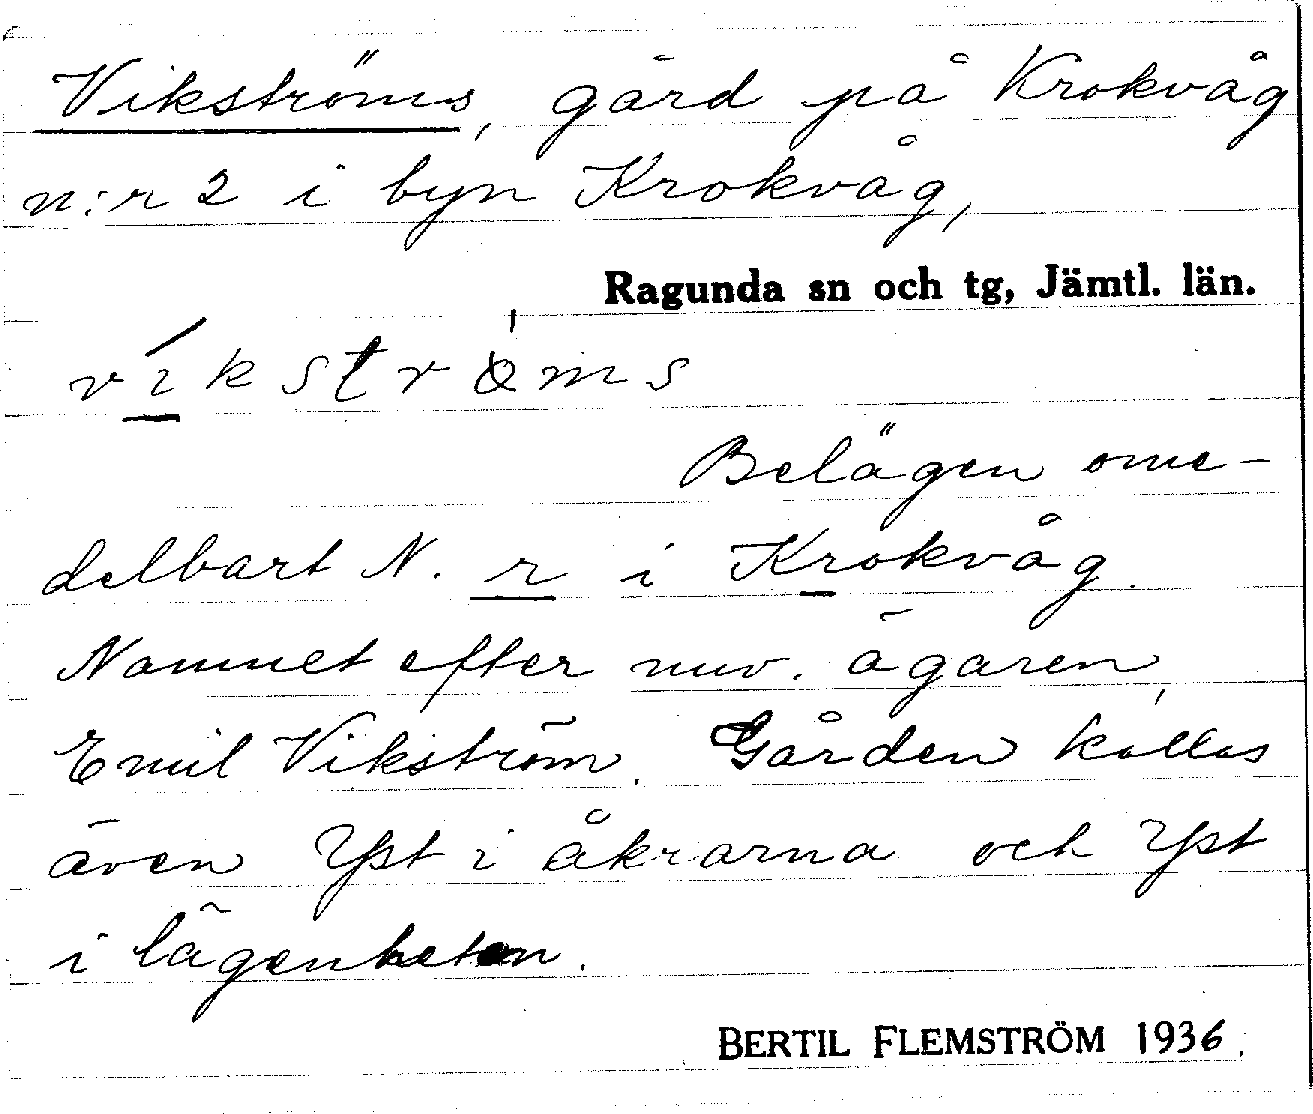 Vikströms, gård på Krokvåg
n:r 2 i byn Krokvåg,
Ragunda sn och tg, Jämtl. län.
víkströms
Belägen ome-
delbart N. r i Krokvåg.
Namnet efter nuv. ägaren,
Emil Vikström. Gården kallas
även Yst i åkrarna och Yst
i lägenheten.
BERTIL FLEMSTRÖM 1936.